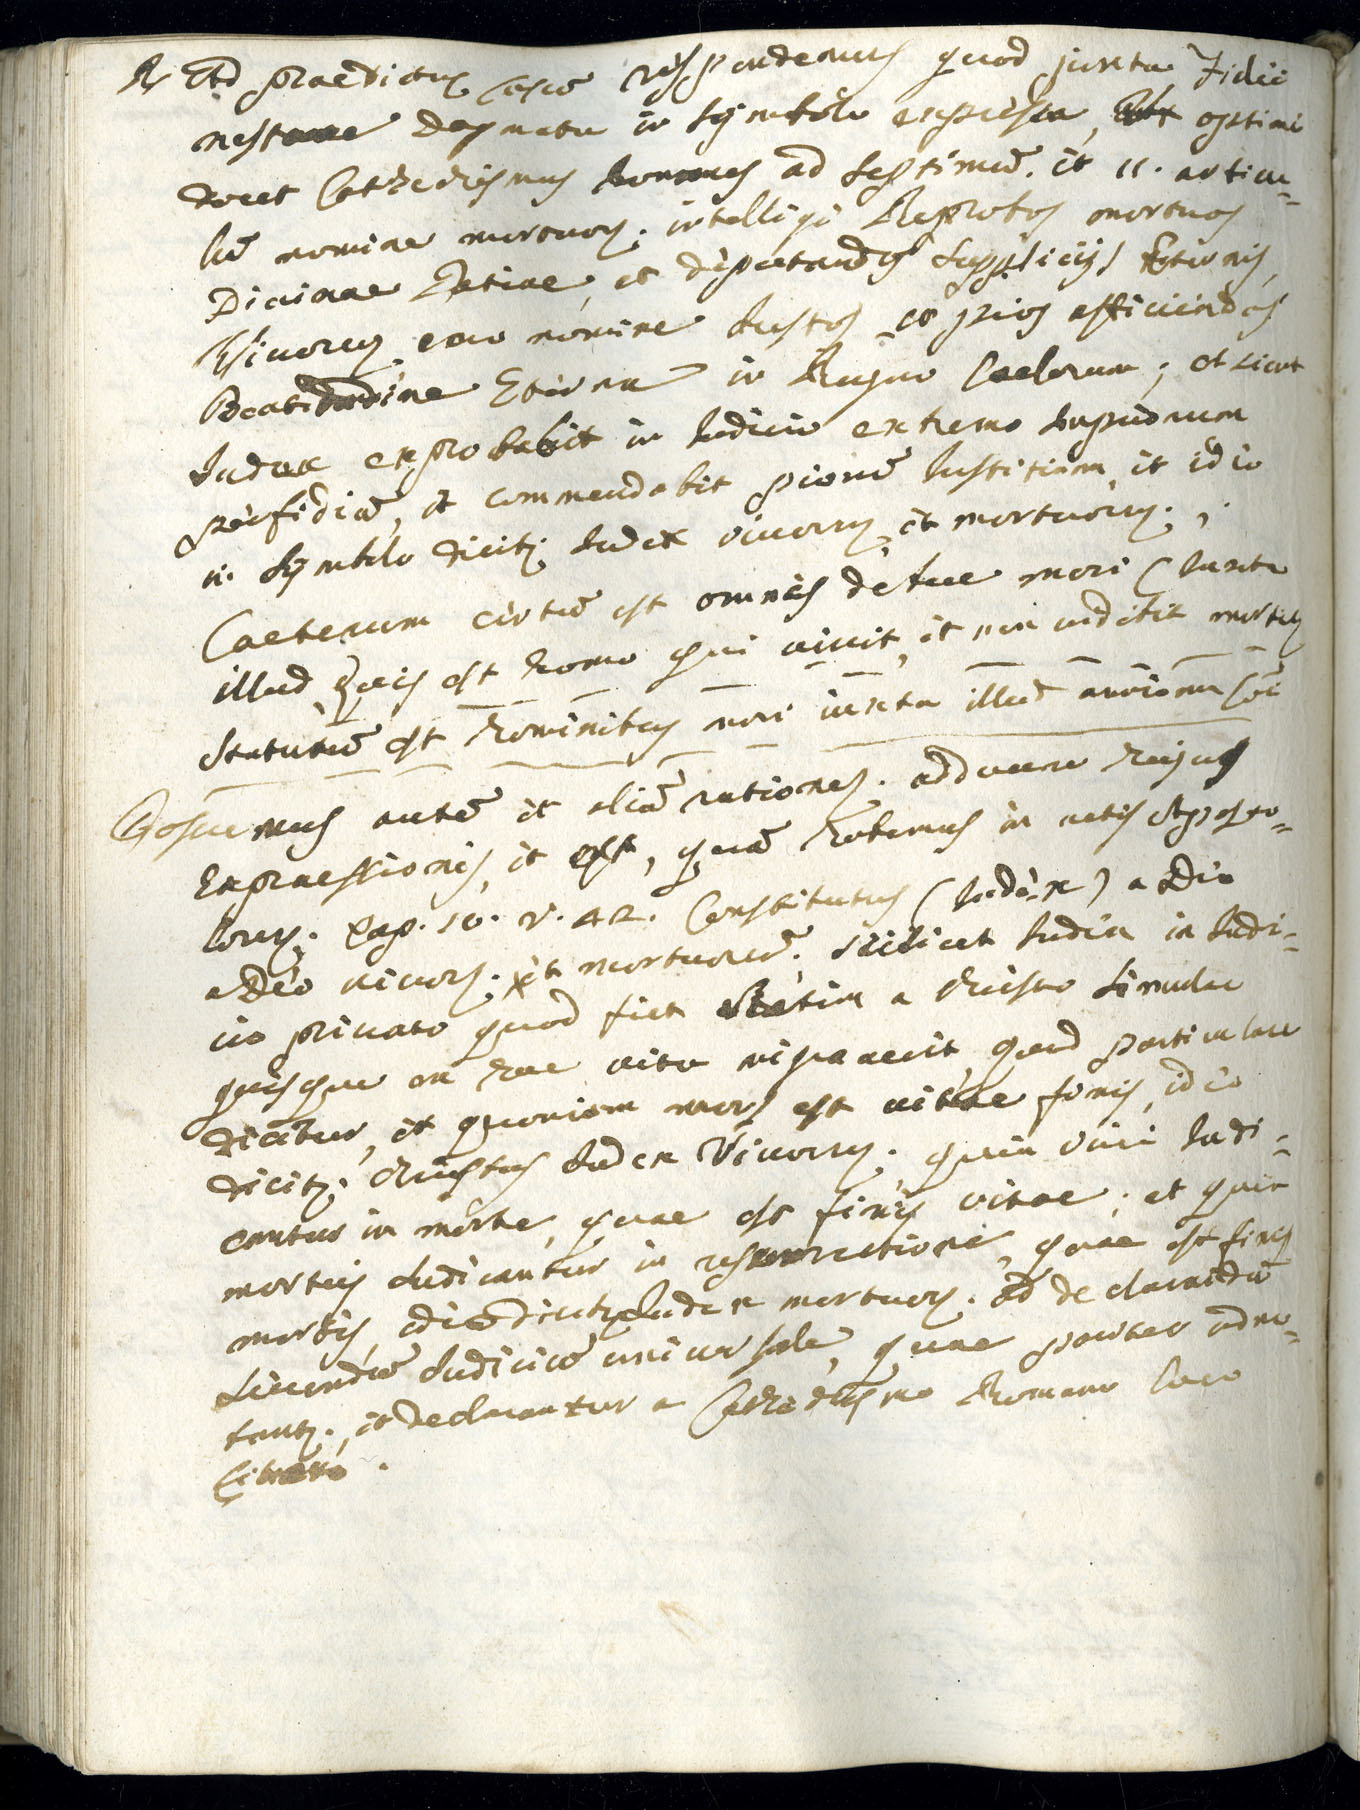 R Ad praedictum casum respondemus quod juxta Fidei
nostrae dogmata in Symbolo expressa, optime
docet Cathechismus Romanus ad septimum. et 11. articu=
lum nomine mortuorum. intelligi Reprobos mortuos
Divinae gratiae, et deputandos supplicijs Eternis,
Vivorum vero nomine Iustos, et pios afficiendos
Beatitudine Eterna in Regno Caelorum; et sicut
Iudex exprobabit in Iudicio extremo impiorum
perfidiam, et commendabit piorum Iustitiam et id io
in Symbolo dicitur Iudex vivorum, et mortuorum.
Caeterum certum est omnes debere mori (Iuxta
illud, Quis est homo qui vivit, et non videbit mortem
Statutum est hominibus mori iuxta illud
Possumus autem et aliam rationem. adducere hujus
Expraessionis, et est, quam habemus in actis Apposto=
lorum. Cap. 10. v. 42. Constitutus (Iudex) a Deo
a Deo vivorum. et mortuorum. scilicet Iudex in Iudi=
cio privato quod fiet statim a Christo simulac
quisque ex hac vita migraverit, quod particulare
dicitur, et quoniam mors est vitae finis, id io
dicitur. Christus Iudex Vivorum. quia vivi Iudi=
cantur in morte, quae est finis vitae; et quia
mortui Iudicantur in resurrectione, quae est finis
mortis, id io dicitur Iudex mortuorum. ad declarandum
secundum Iudicium universale, quae pariter adno=
tantur. et declarantur a Cathechismo Romano loco
Citato.